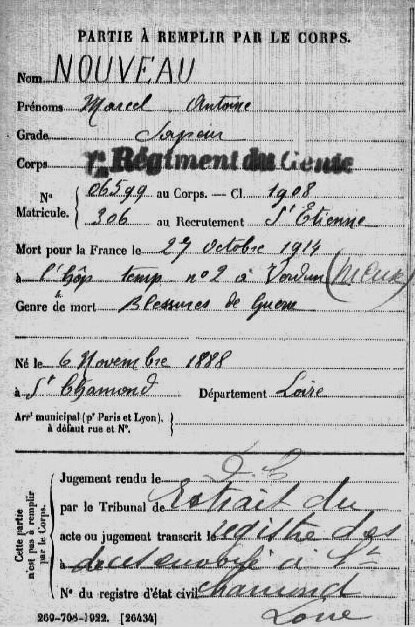 PARTIE À REMPLIR PAR LE CORPS.
Nom NOUVEAU
Prénoms Marcel Antoine
Grade Sapeur
Corps Régiment du Génie
N° 06599 au Corps. — Cl. 1908
Matricule. 306 au Recrutement St Etienne
Mort pour la France le 27 octobre 1914
à l'hôp temp n° 2 à Verdun (Meuse)
Genre de mort Blessures de Guerre
Né le 6 Novembre 1888
à St Chamond Département Loire
Arrt municipal (pr Paris et Lyon),
à défaut rue et N°.
Cette partie n'est pas à remplir par le Corps.
Jugement rendu le
par le Tribunal de Extrait du
acte ou jugement transcrit le registre des
à St
N° du registre d'état civil Chamond
Loire
269-708-1922. [26434]